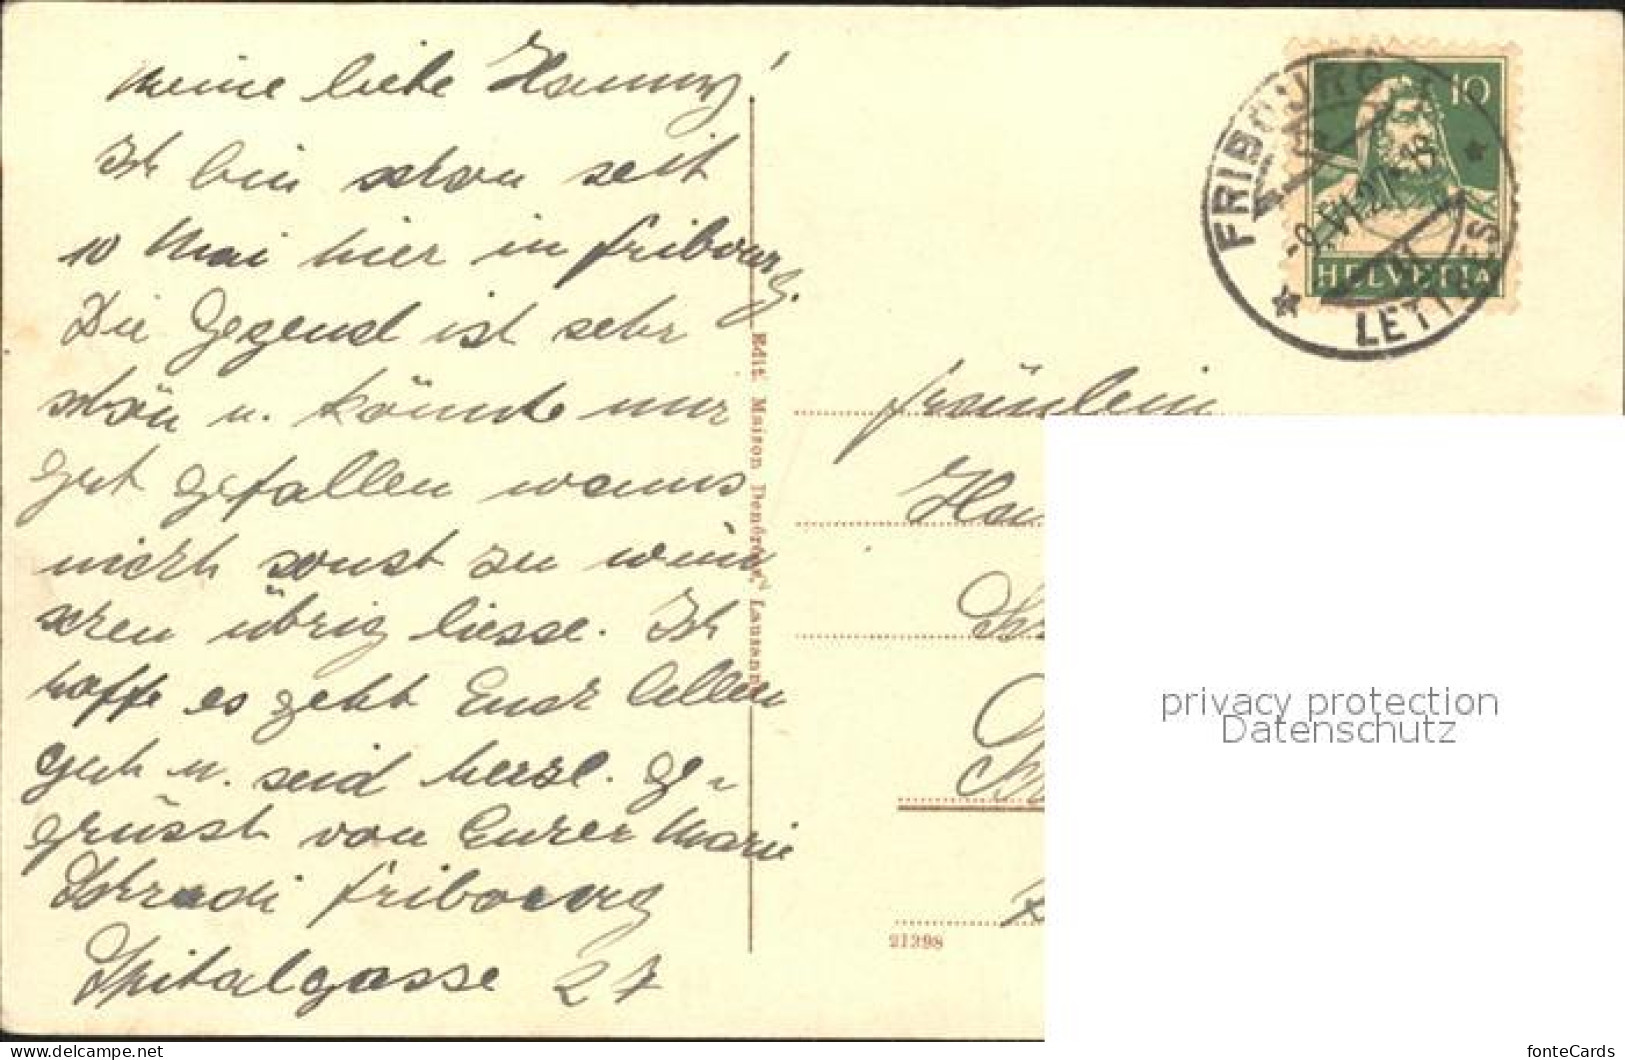 Meine liebe Hanny!
Ich bin schon seit
10 Mai hier in Fribourg.
Die Gegend ist sehr
schön u. könnte mir
gut gefallen wenns
nicht sonst zu wün
schen übrig liesse. Ich
hoffe es geht Euch Allen
gut u. seid herzl. ge-
grüsst von Eurer Marie
Fribourg
Spitalgasse 27
Edit. Maison Denéréaz, Lausanne
FRIBOURG
LETTRES
10
HELVETIA
Fräulein
21398
privacy protection
Datenschutz
the-best-choice.to collect on
fonteCards